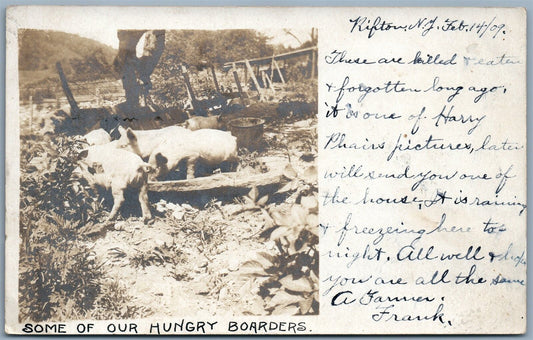 Rifton, N.Y. Feb. 14/09.
These are killed & eaten
& forgotten long ago.
it is one of Harry
Phairs pictures, later
will send you one of
the house, It is raining
& freezeing here to-
night. All well &
you are all the same
A Farmer.
Frank.
SOME OF OUR HUNGRY BOARDERS.